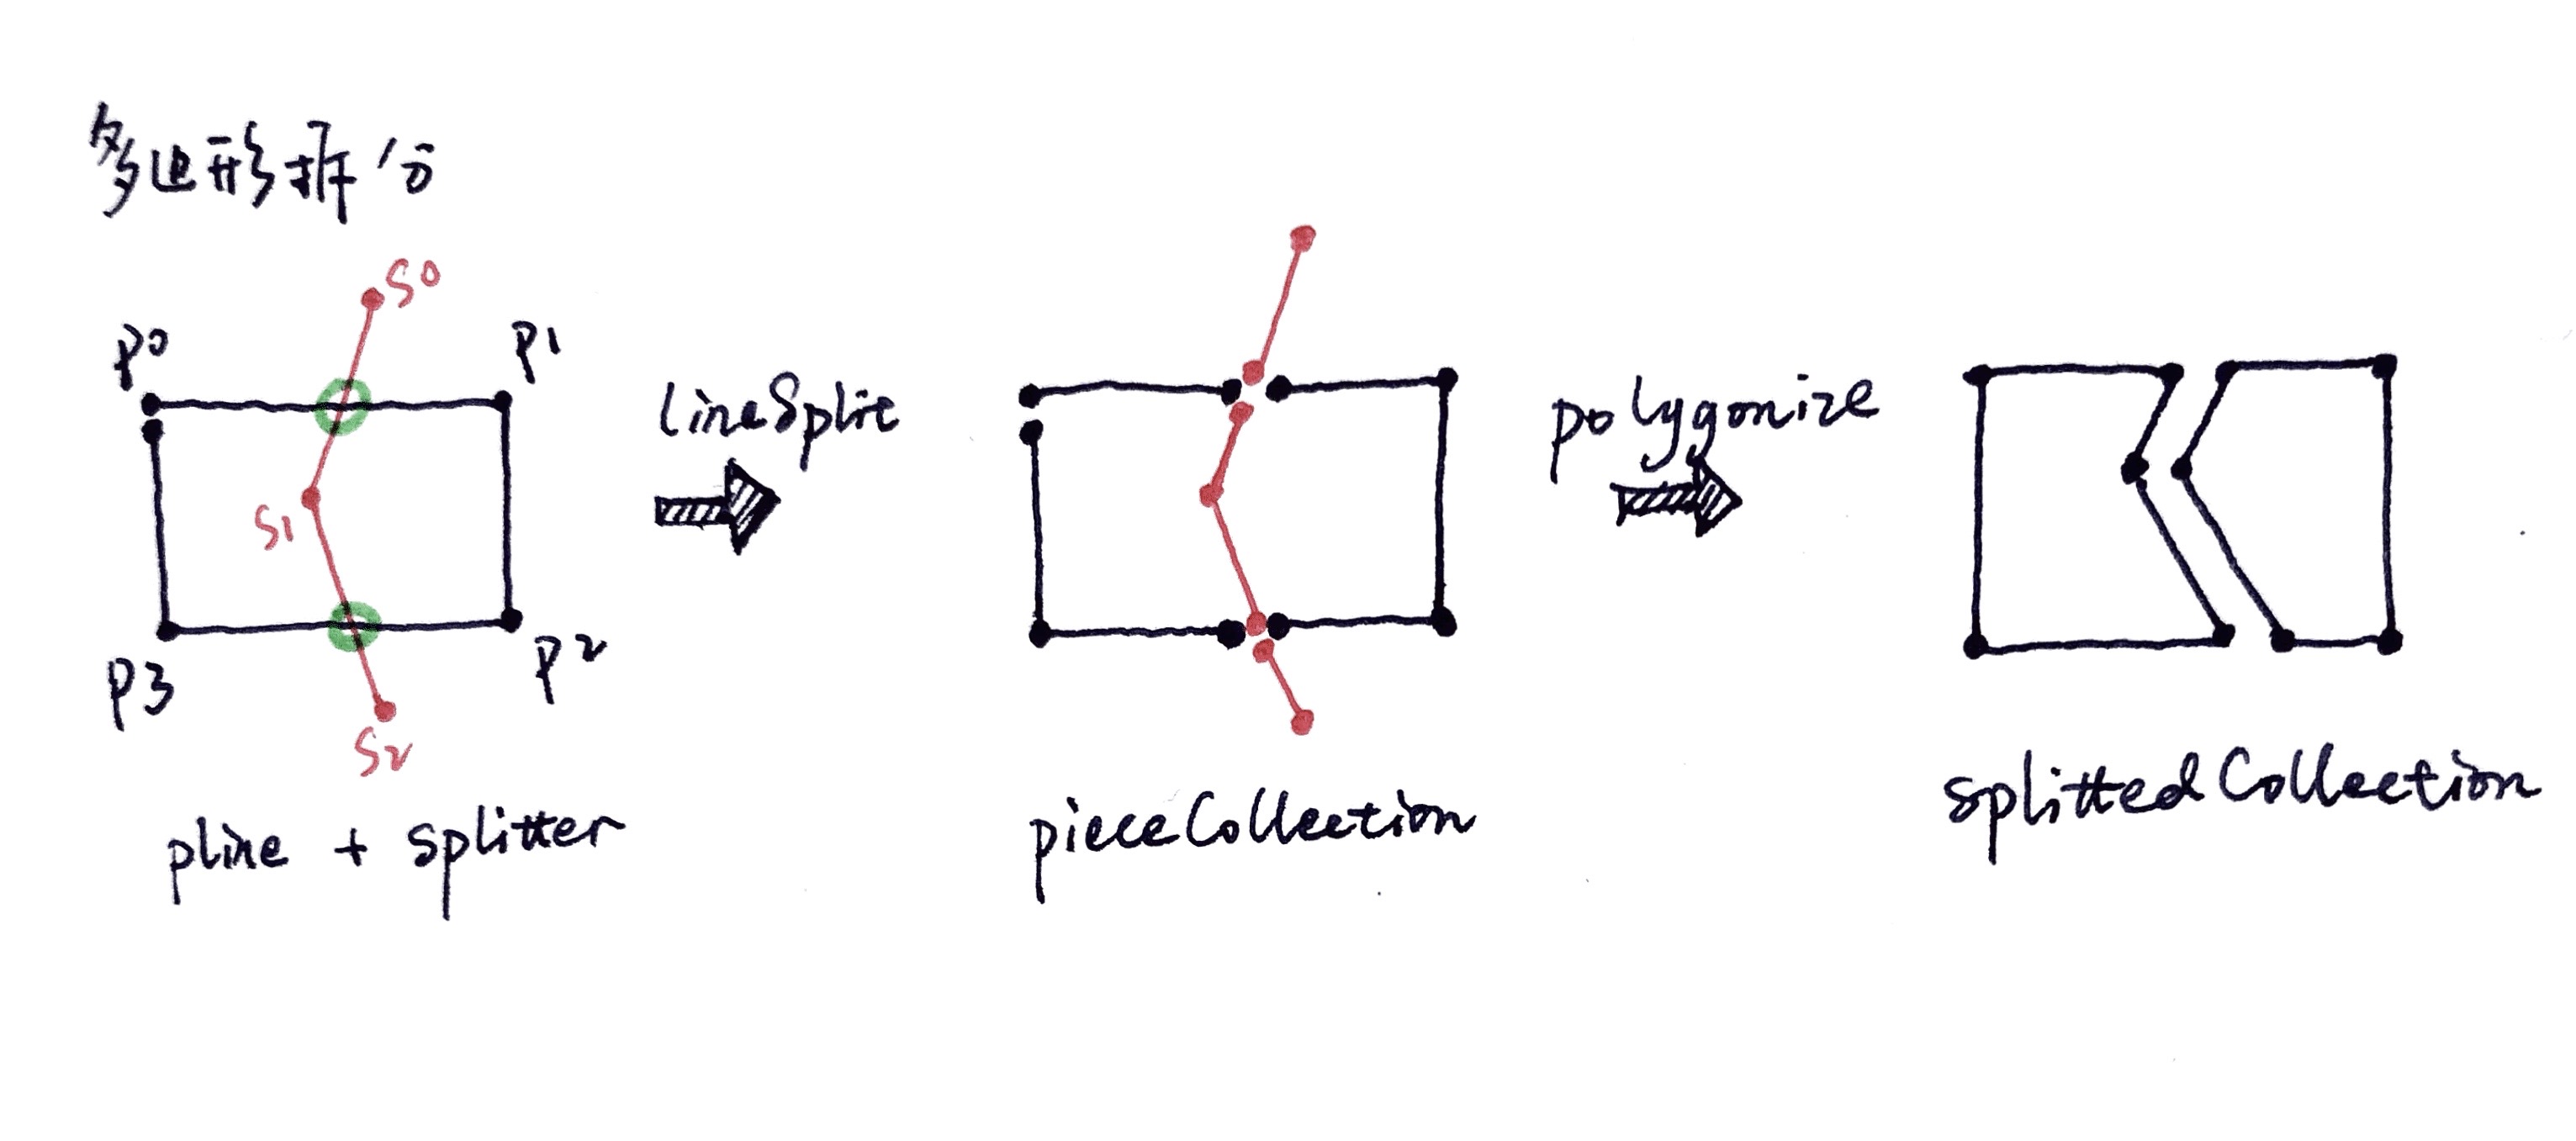 多边形拆分
S0
P0
P1
S1
P3
P2
S2
pline + splitter
lineSplit
pieceCollection
polygonize
splittedCollection